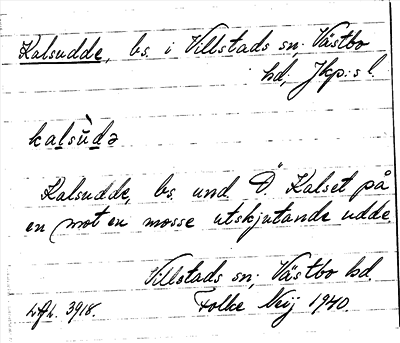 Kalsudde, bs. i Villstads sn; Västbo
hd; Jkp:s l.
kalsùdə
Kalsudde, bs. und. Ö. Kalset på
en mot en mosse utskjutande udde.
Villstads sn; Västbo hd.
Folke Neij 1940.
LAL. 3918.